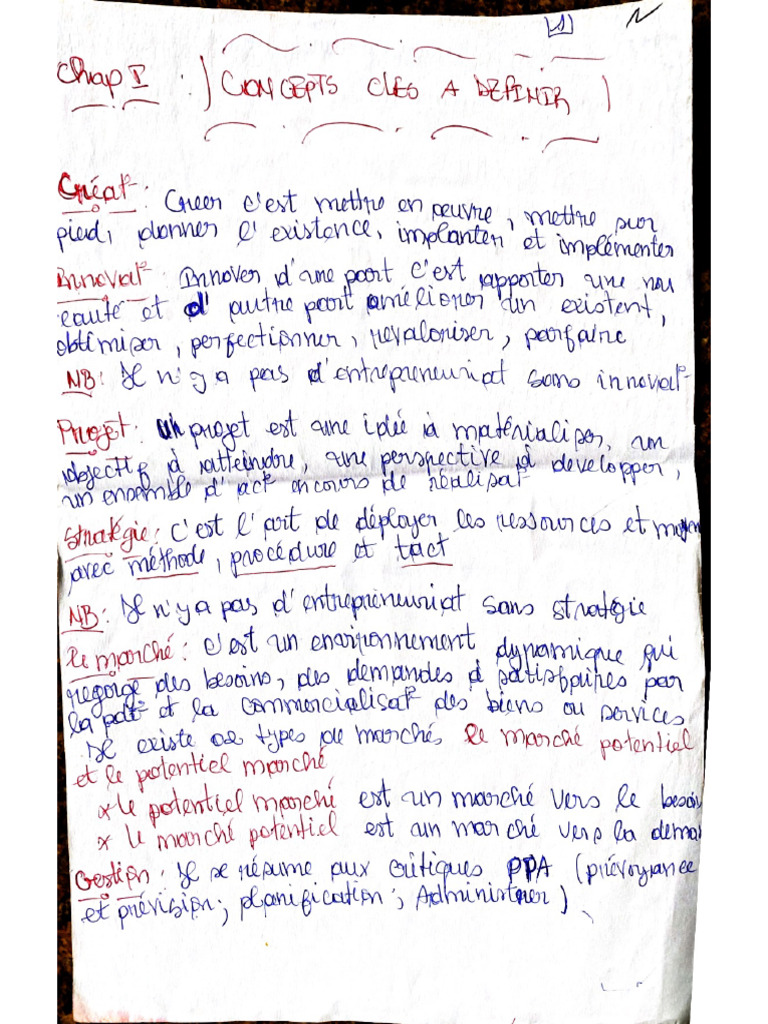 Chap I : CONCEPTS CLES A DEFINIR
Créat° : Creer c'est mettre en peuvre, mettre sur
pied, donner l'existence, implanter et implémenter
Innovat° : Innover d'une part c'est apporter une nou
eauté et d'autre part améliorer un existent,
obtimiser, perfectionner, revaloriser, parfaire
NB : Il n'y a pas d'entrepreneuriat sans innovat°
Projet : un projet est une idée à matérialiser, un
objectif à atteindre, une perspective à developper,
un ensemble d'act° en cours de réalisat°
Stratégie : C'est l'art de déployer les ressources et moyen
avec méthode, procédure et tact
NB : Il n'y a pas d'entrepreneuriat sans stratégie
Le marché : c'est un environnement dynamique qui
regorge des besoins, des demandes à satisfaires par
la pdt° et la commercialisat° des biens ou services
Il existe types de marchés le marché potentiel
et le potentiel marché
* le potentiel marché est un marché vers le besoin
* le marché potentiel est un marché vers la deman
Gestion : Il se résume aux critiques PPA (prévoyance
et prévision ; planification ; Administrer)